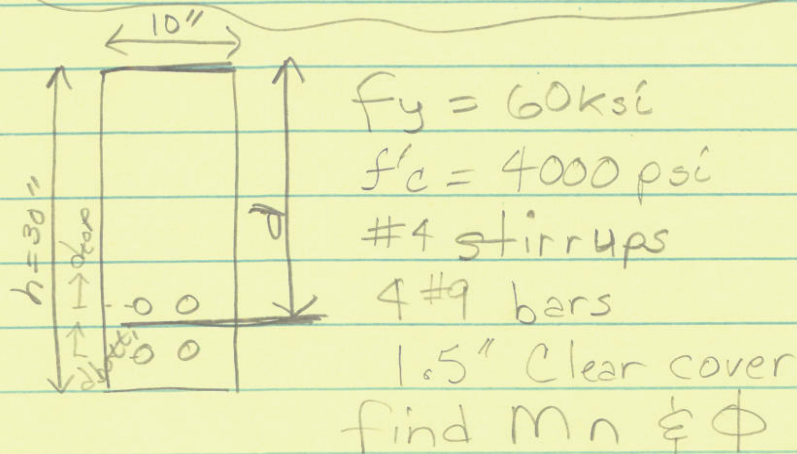 10"
h=30"
d
dtop
dbott.
fy = 60ksi
f'c = 4000 psi
#4 stirrups
4 #9 bars
1.5" Clear cover
find Mn & Φ